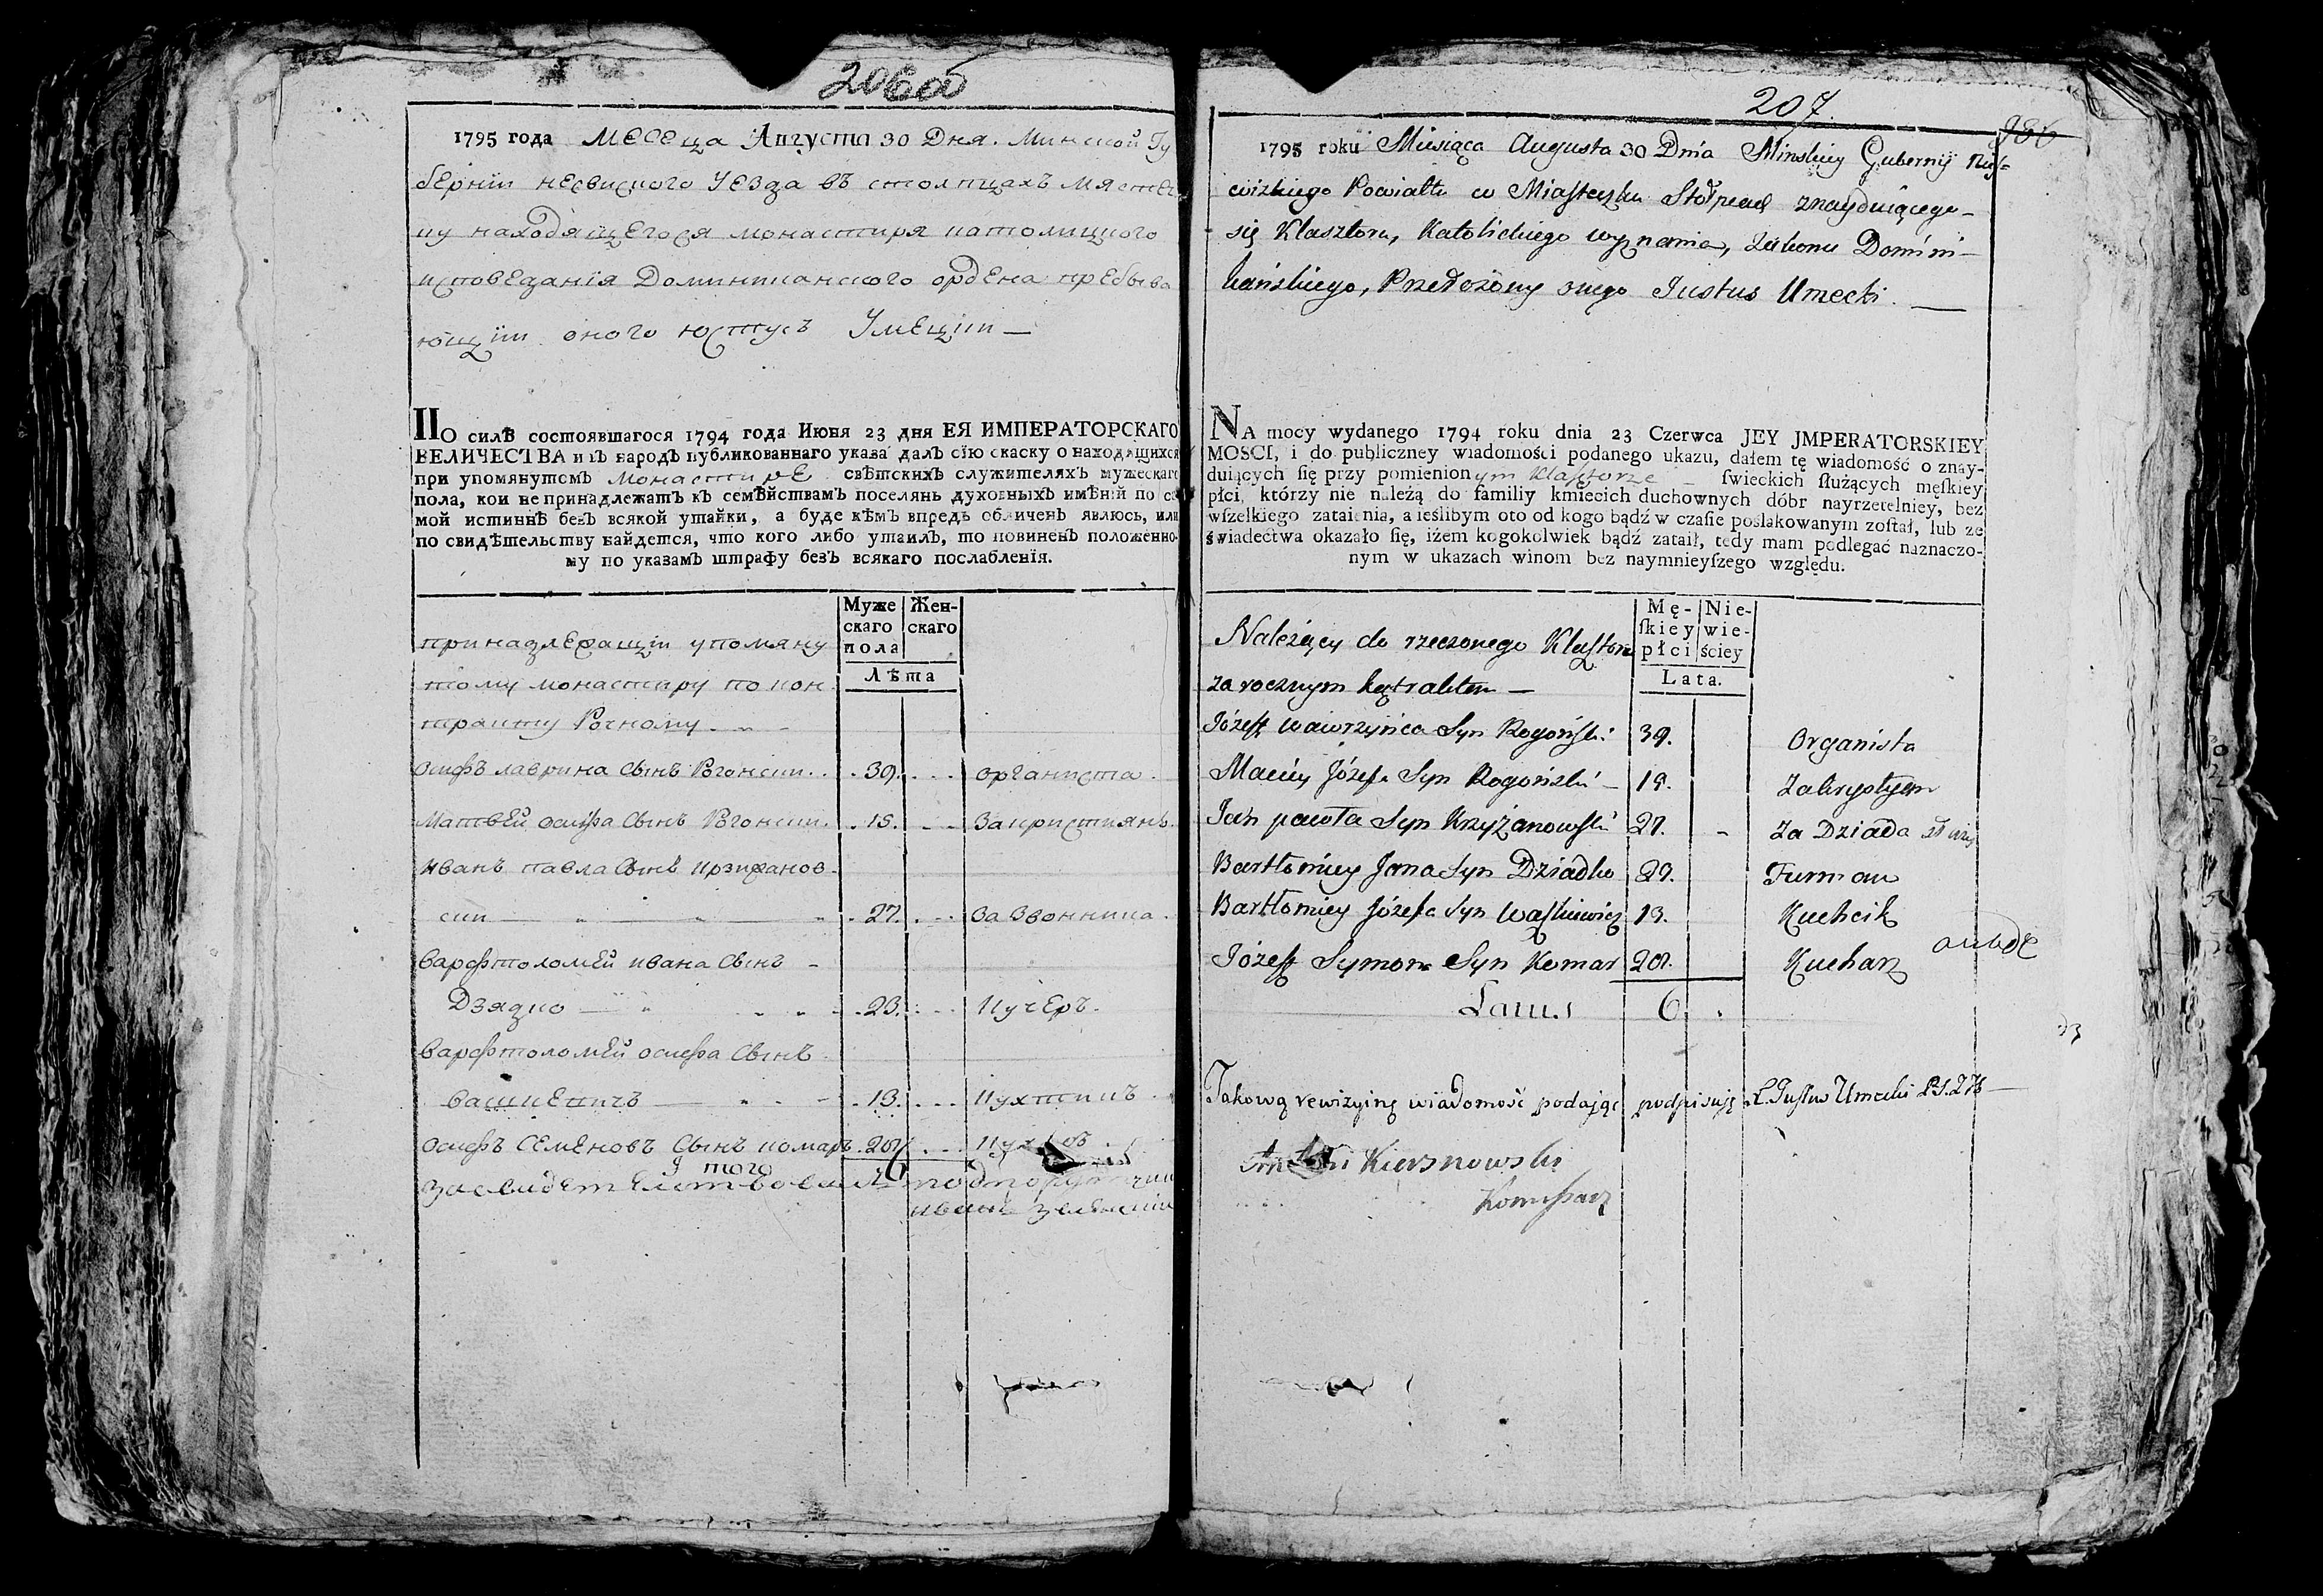 206 об
1795 года месеца Августа 30 Дня. Минской Гу
бернїи несвискаго Уезда въ столпцахъ мястеч
ку находящегося монастиря католицкого
исповеданїя Доминиканского ордена пребыва
ющїи оного Юстусъ Умецкїи —
ПО силѣ состоявшагося 1794 года Июня 23 дня ЕЯ ИМПЕРАТОРСКАГО
ВЕЛИЧЕСТВА и въ народъ публикованнаго указа далъ сїю скаску о находящихся
при упомянутомъ монастире свѣтскихъ служителяхъ мужескаго
пола, кои не принадлежатъ къ семѣйствамъ поселянъ духовныхъ имѣнїй по са
мой истиннѣ безъ всякой утайки, а буде кѣмъ впредь обличенъ явлюсь, или
по свидѣтельству найдется, что кого либо утаилъ, то повиненъ положенно-
му по указамъ штрафу безъ всякаго послабленїя.
Муже Жен-
скаго скаго
пола
Лѣта
принадлежащїи упомяну
тому монастиру по кон
тракту Рочному
Осифъ лаврина Сынъ Рогонски . 39. органиста.
Матвей осифа Сынъ Рогонски. . 15. Закристиянъ.
Иванъ павла Сынъ Крзижанов-
ски — . 27. За Звонника.
Варфтоломей ивана Сынъ -
Дзядко — . 23. Кучеръ.
Варфтоломей осифа Сынъ
Вашкевичъ — . 13. Кухтикъ
Осифъ Семеновъ Сынъ комаръ . 20.
того 6
иванъ
207.
1795 roku Miesiąca Augusta 30 Dnia Minskiey Gubernij Nieś=
wizkiego Powiatu w Miasteczku Stołpcach znayduiącego-
się Klasztoru, Katolickiego wyznania, Zakonu Domini-
kańskiego, Przełożony onego Justus Umecki. —
NA mocy wydanego 1794 roku dnia 23 Czerwca JEY JMPERATORSKIEY
MOSCI, i do publiczney wiadomości podanego ukazu, dałem tę wiadomość o znay-
duiących ſię przy pomienionym Klasztorze — ſwieckich ſłużących męſkiey
płci, którzy nie należą do familiy kmiecich duchownych dóbr nayrzetelniey, bez
wſzelkiego zataienia, a ieślibym oto od kogo bądź w czaſie poslakowanym zoſtał, lub ze
świadectwa okazało ſię, iżem kogokolwiek bądź zataił, tedy mam podlegać naznaczo-
nym w ukazach winom bez naymnieyſzego względu.
Mę- Nie-
ſkiey wie-
płci ściey
Lata.
Należący do rzeczonego Klasztoru
za rocznym kątraktem —
Józeff Wawrzyńca Syn Rogoński 39. Organista
Maciey Józefa Syn Rogoński — 19. Zakrystyan
Jan pawła Syn Krzyżanowski 27. Za Dziada
Bartłomiey Jana Syn Dziadko 29. Furman
Bartłomiey Józefa Syn Waszkiewicz 13. Kuchcik
Józeff Symona Syn Komar 20. Kucharz
Latus 6.
Takową rewizyiną wiadomość podając podpisuję X. Justus Umecki
Kiersnowski
Komisarz